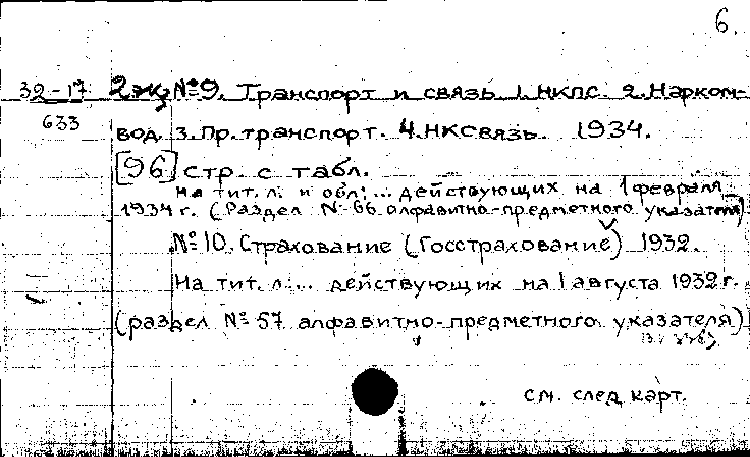 6.
32-17 2 экз № 9. Транспорт и связь 1. НКПС. 2. Нарком-
633
вод. 3. Пр. транспорт. 4. НКСвязь. 1934.
[96] стр. с табл.
На тит. л. и обл: ... действующих на 1 февраля
1934 г. (Раздел № 66 алфавитно-предметного указателя)
№ 10. Страхование (Госстрахование) 1932.
На тит. л: ... действующих на 1 августа 1932 г.
(раздел № 57 алфавитно-предметного указателя)
см. след. карт.